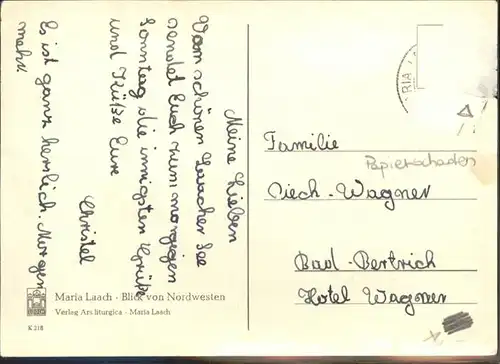 Meine Lieben
Vom schönen Laacher See
sendet Euch zum morgigen
Sonntag die innigsten Grüße
und Küße Eure
Christel
Es ist ganz herrlich. Morgen
mehr
Familie
Papierschaden
Diech-Wagner
Bad-Bertrich
Hotel Wagner
Maria Laach - Blick von Nordwesten
Verlag Ars liturgica - Maria Laach
K 218
RIA